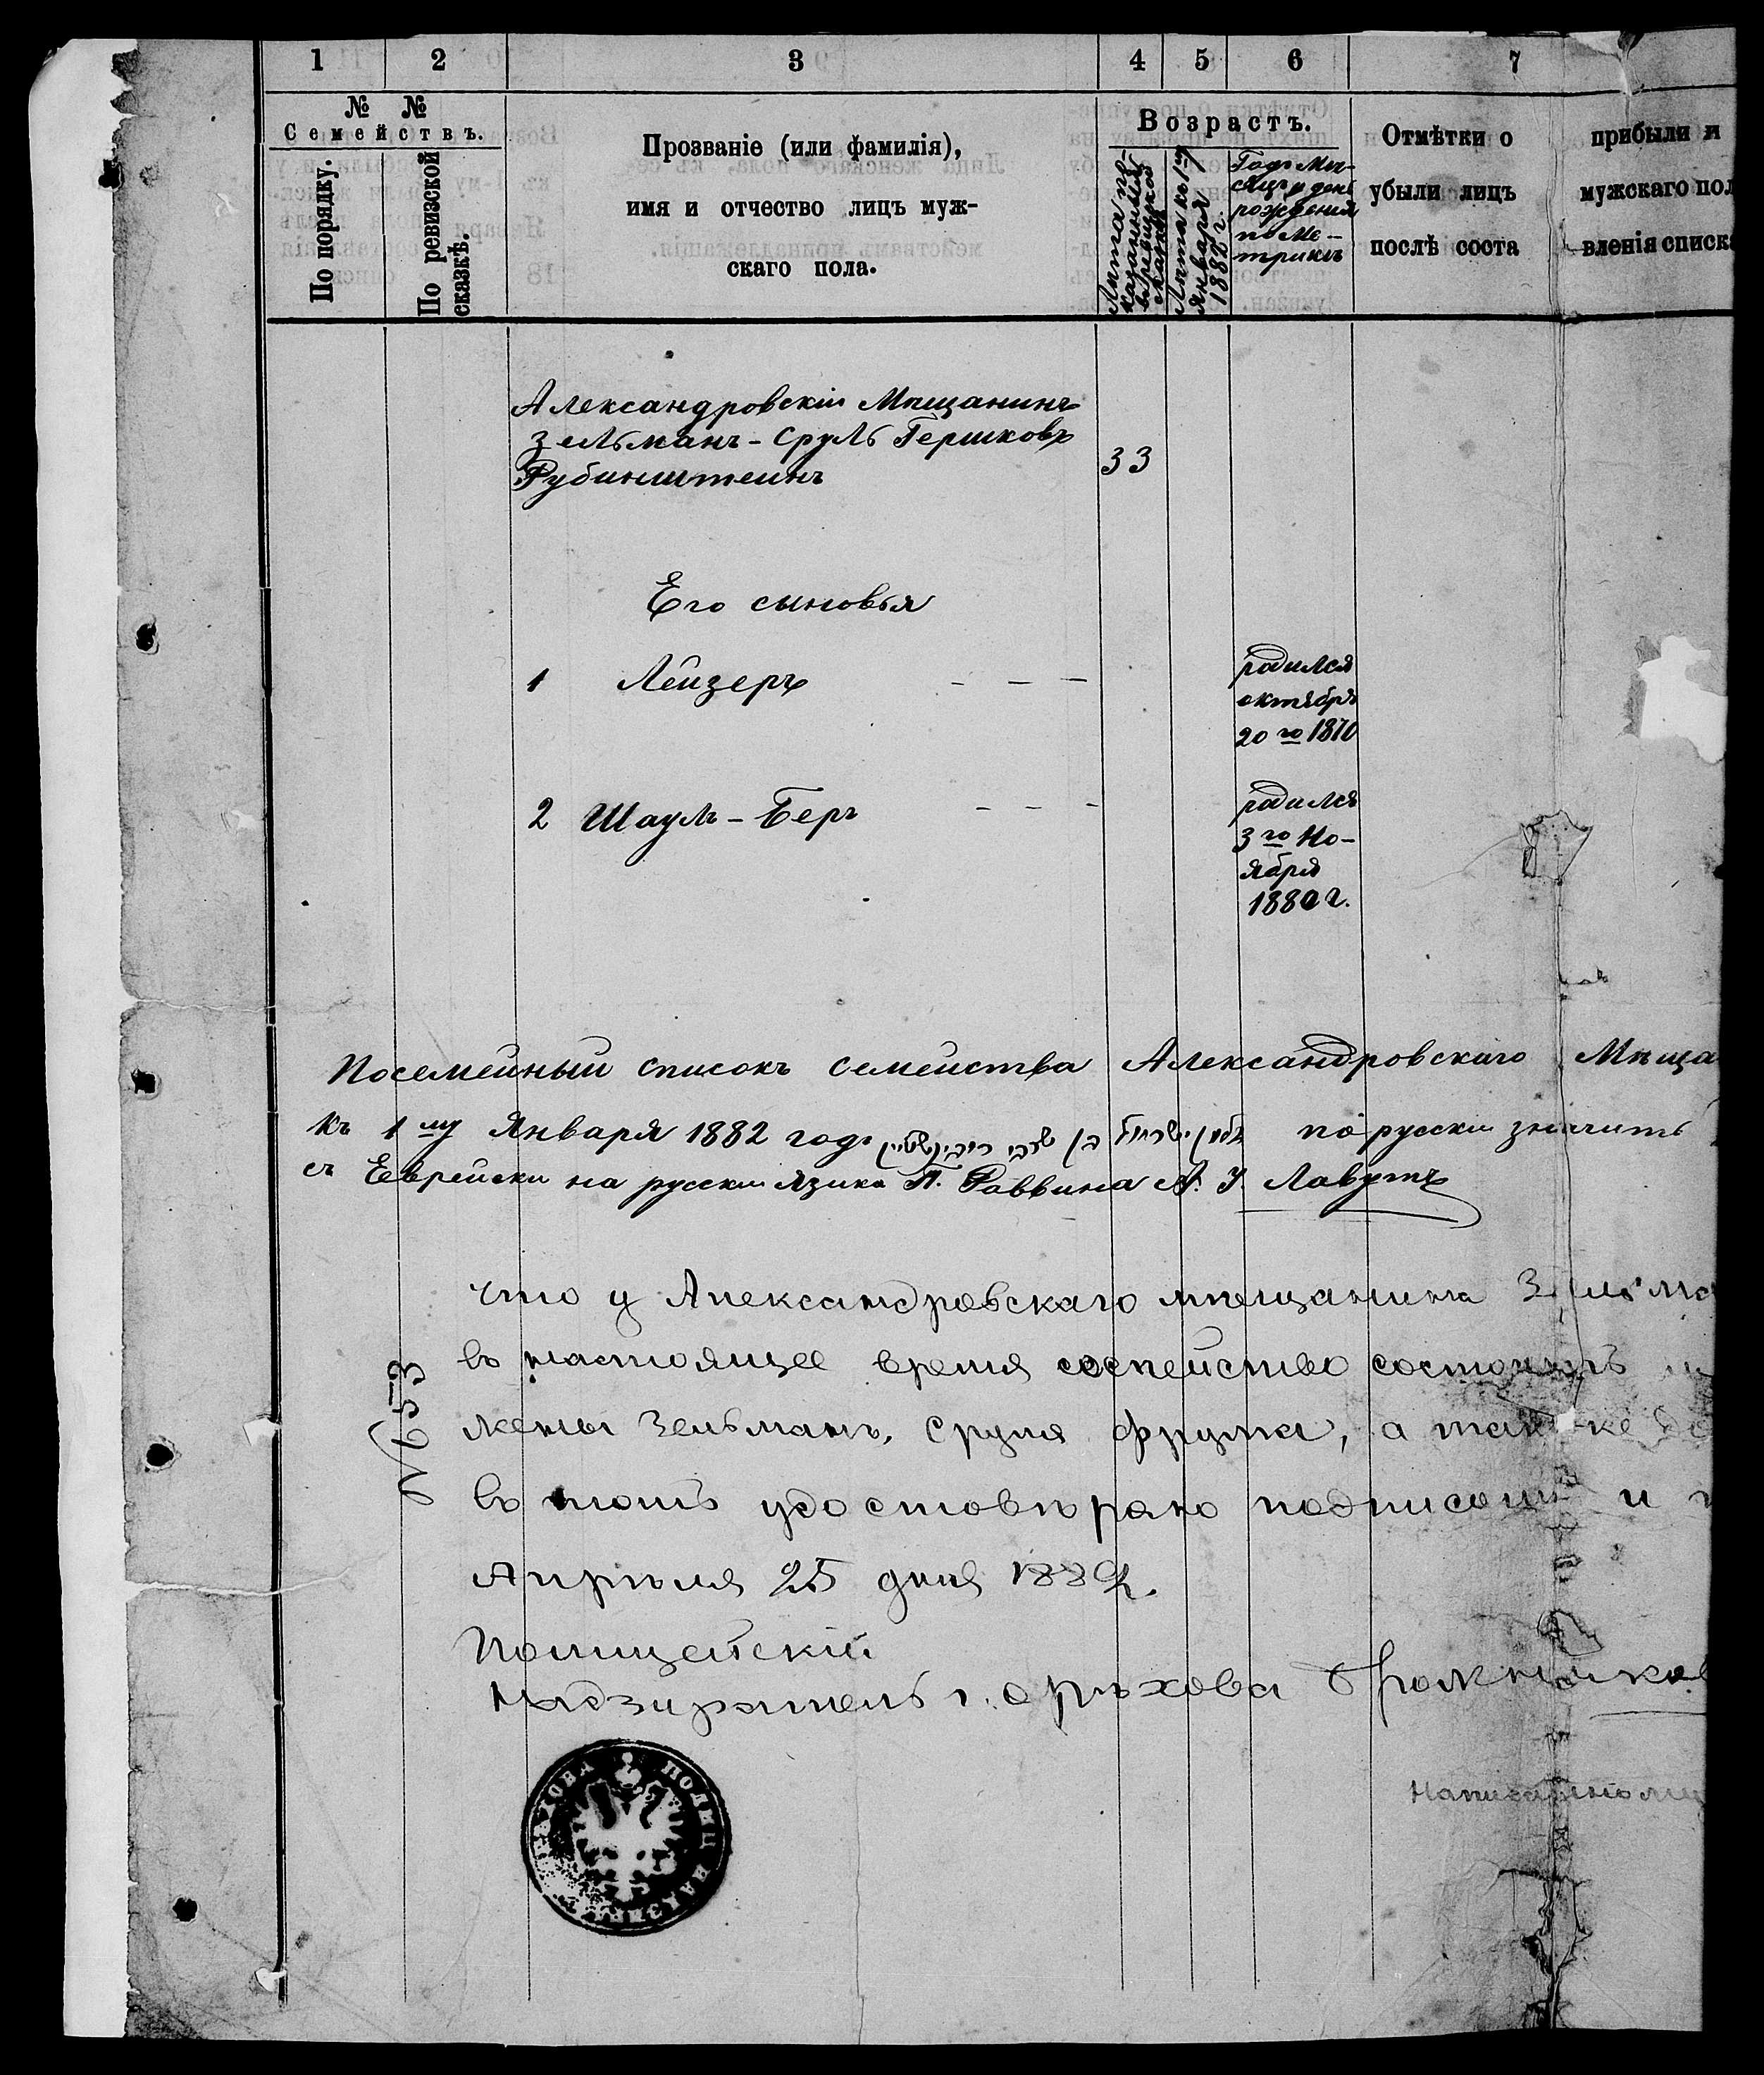 1 2 3 4 5 6 7
№ № Семействъ.
По порядку.
По ревизской сказкѣ.
Прозваніе (или фамилія),
имя и отчество лицъ муж-
скаго пола.
Возрастъ.
Лѣта по-
казанныя
въ ревизской
сказкѣ
Лѣта къ 1му
Января
1882 г.
Годъ Мѣ-
сяцъ и день
рожденія
по Ме-
трикѣ
Отмѣтки о прибыли и
убыли лицъ мужскаго пол
послѣ соста вленія списк
Александровскій Мѣщанинъ
Зельманъ-Сруль Гершковъ
Рубинштеинъ
33
Его сыновья
1 Лейзеръ - - -
родился
октября
20го 1870
2 Шауль-Беръ - - -
родился
3го Но-
ября
1880 г.
Посемейный списокъ семейства Александровскаго Мѣща
къ 1му Января 1882 года זלמן ישראל בן הערשקי רובינשטיין по русски значитъ
съ Еврейски на русскій язика П. Раввина А. У. Лавутъ
что у Александровскаго мѣщанина Зельма
въ настоящее время семейство состоитъ
жены Зельманъ, Сруля Фрума, а так-же
въ томъ удостовѣряю подписомъ и
Апрѣля 25 дня 1882.
№653
Полицейскій
Надзиратель г. Орѣхова
ПОЛИЦ НАДЗИРАТ ОРѢХОВА